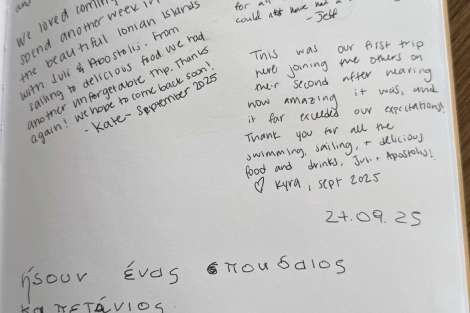 We loved coming
spend another week in
the beautiful Ionian Islands
with Juli & Apostolis. From
sailing to delicious food we had
another unforgetable trip. Thanks
again! We hope to come back soon!
- Kate - September 2025
for all
could not have
- Jeff
This was our first trip
here joining the others on
their second after hearing
how amazing it was, and
it far exceeded our expectations!
Thank you for all the
swimming, sailing, + delicious
food and drinks, Juli + Apostolis!
♡ Kyra, Sept 2025
24.09.25
ήσουν ένας σπουδαίος
καπετάνιος